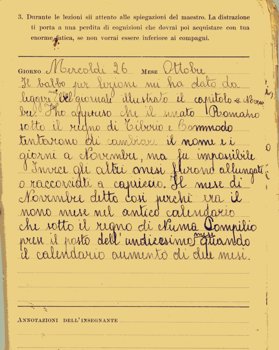 3. Durante le lezioni sii attento alle spiegazioni del maestro. La distrazione
ti porta a una perdita di cognizioni che dovrai poi acquistare con tua
enorme fatica, se non vorrai essere inferiore ai compagni.
GIORNO Mercoldì 26 MESE Ottobre
Il babbo per lezione mi ha dato da
leggere nel giornale illustrato il capitolo
Ho appreso che il senato Romano
sotto il regno di Tiberio e Commodo
tentarono di cambiare il nome e i
giorni a Novembre, ma fu impossibile
Invece gli altri mesi furono allungati
o raccorciati a capriccio. Il mese di
Novembre detto così perchè era il
nono mese nel antico calendario
che sotto il regno di Numa Pompilio
prese il posto dell'undicesimo mese quando
il calendario aumentò di due mesi.
ANNOTAZIONI DELL'INSEGNANTE